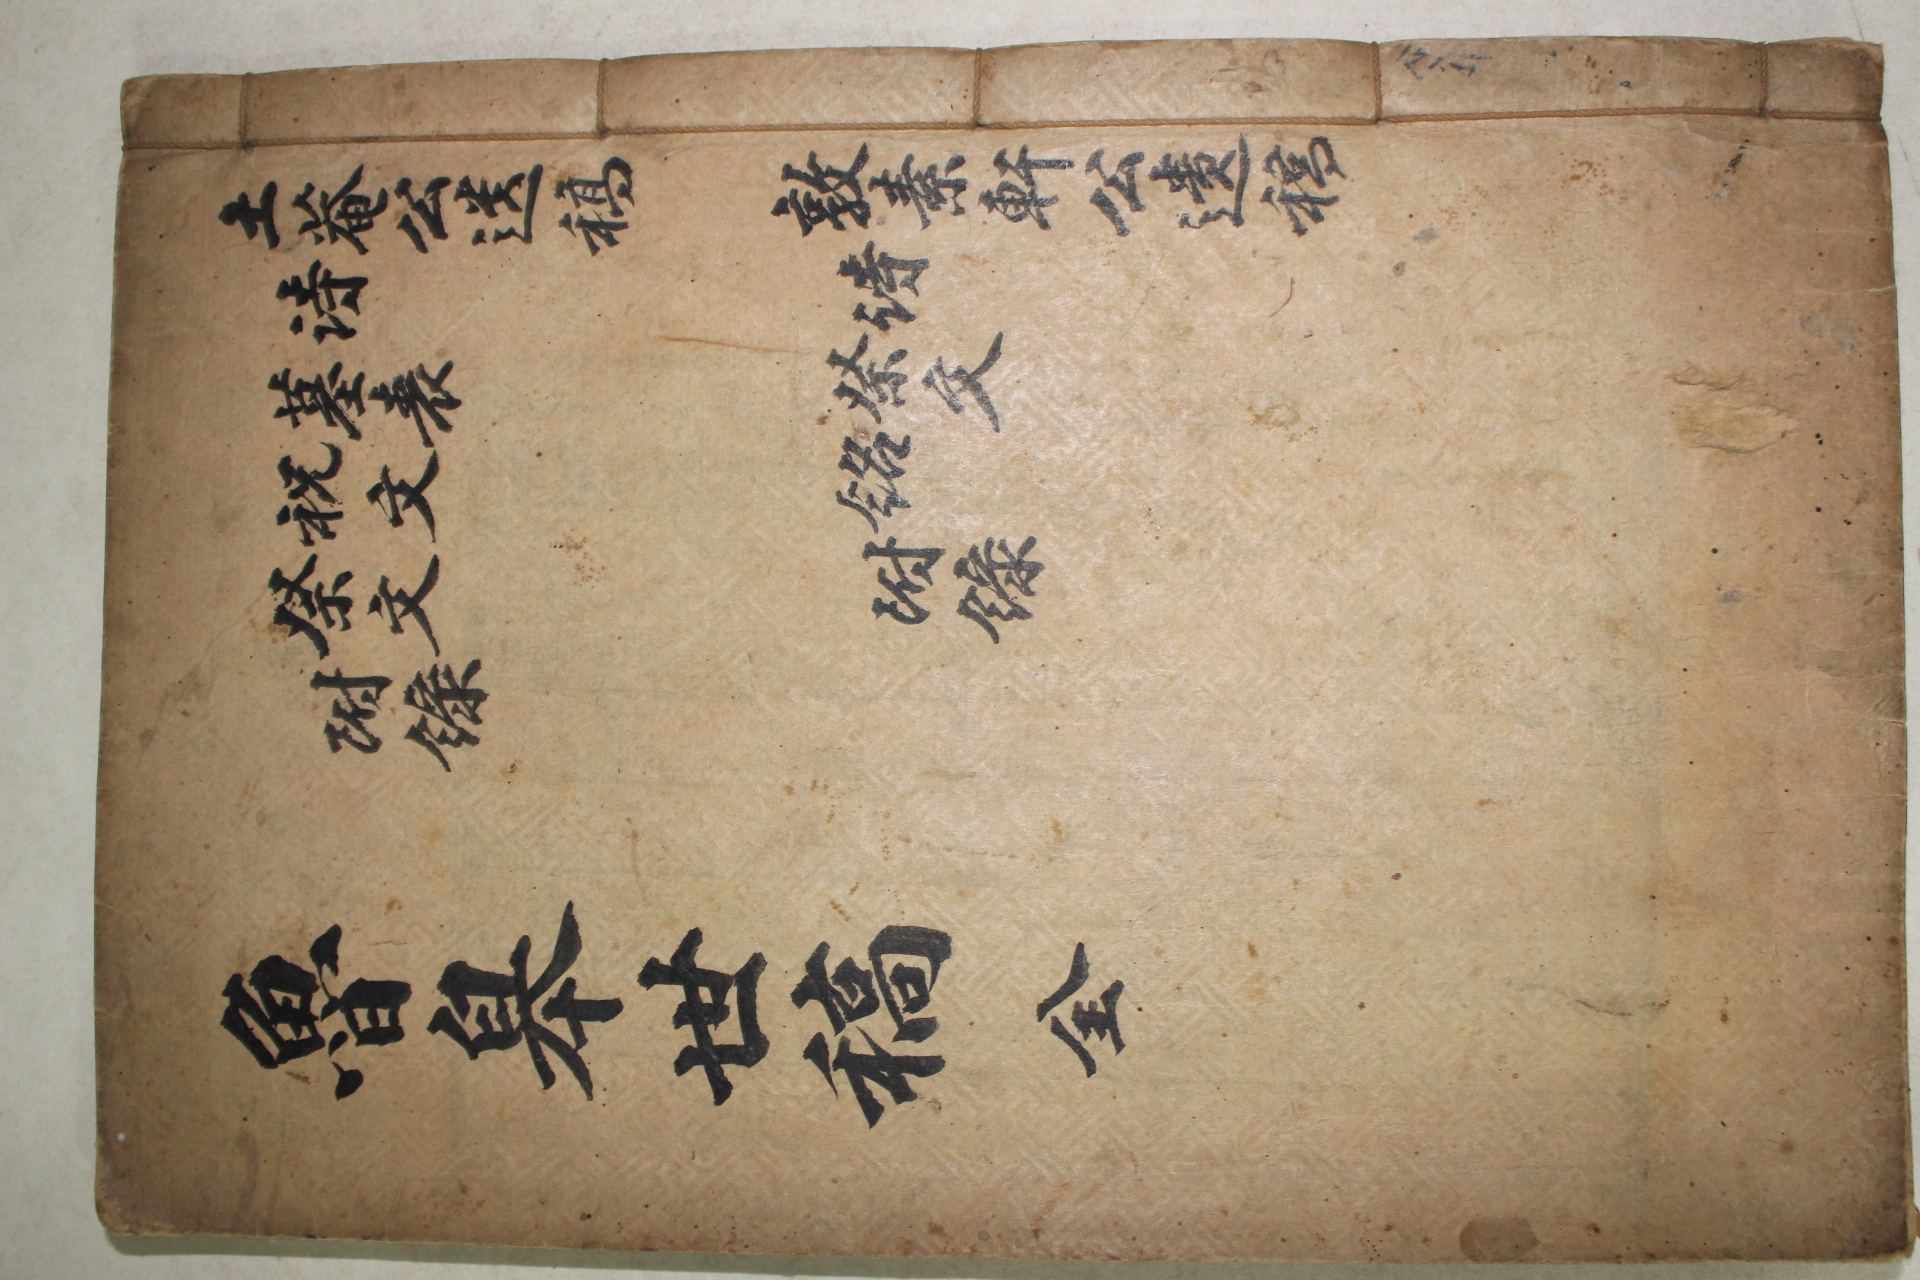 土菴公遺稿
詩
墓表
祝文
祭文
附錄
敦素軒公遺稿
詩
祭文
銘
附錄
魯皐世稿 全